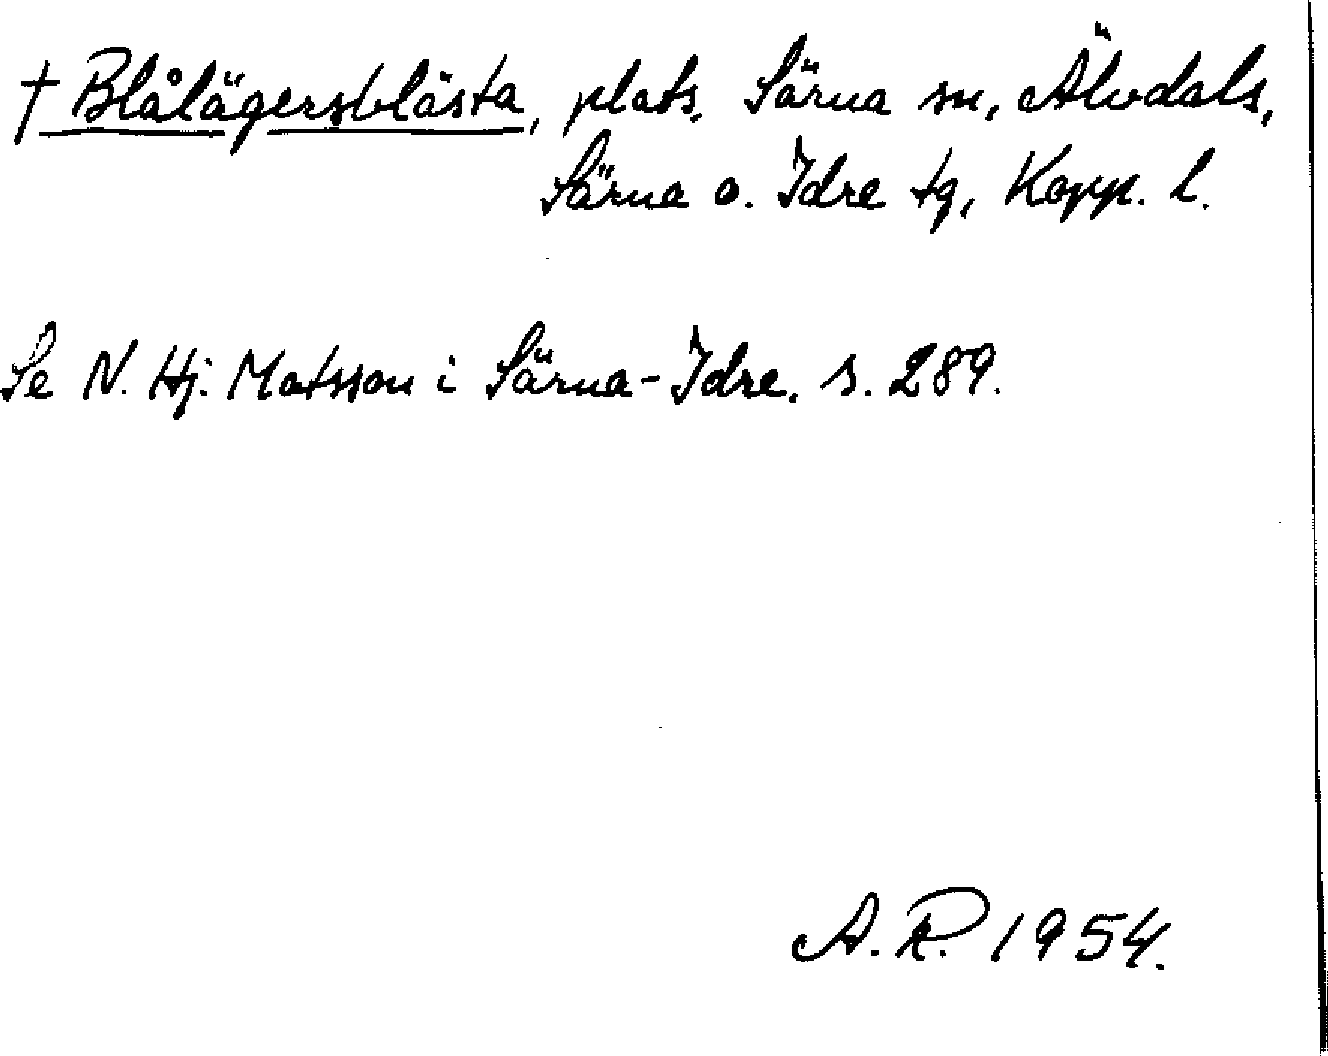 † Blålägersblästa, plats, Särna sn, Älvdals,
Särna o. Idre tg, Kopp. l.
Se N. Hj. Matsson i Särna-Idre. s. 289.
A. R. 1954.